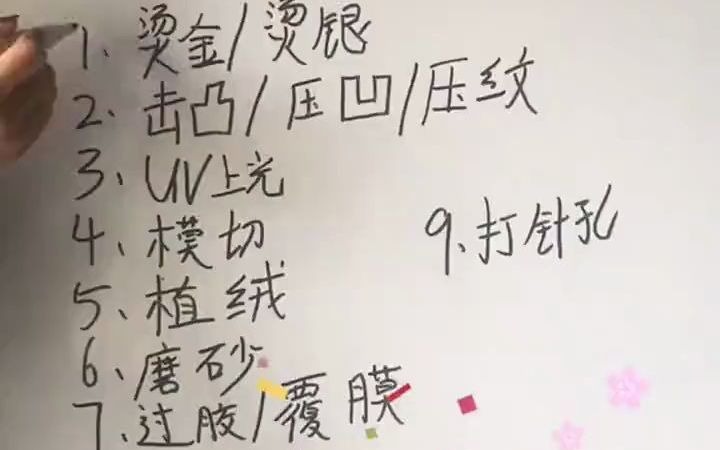 1、烫金/烫银
2、击凸/压凹/压纹
3、UV上光
4、模切
5、植绒
6、磨砂
7、过胶/覆膜
9、打针孔